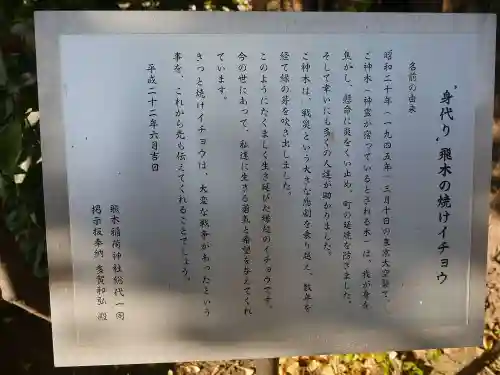 身代り 飛木の焼けイチョウ
名前の由来
昭和二十年(一九四五年)三月十日の東京大空襲で、
ご神木(神霊が宿っているとされる木)は、我が身を
焦がし、懸命に炎をくい止め、町の延焼を防ぎました。
そして幸いにも多くの人達が助かりました。
ご神木は、戦災という大きな悲劇を乗り越え、数年を
経て緑の芽を吹き出しました。
このようにたくましく生き延びた縁起のイチョウです。
今の世にあって、私達に生きる勇気と希望を与えてくれ
ています。
きっと焼けイチョウは、大変な戦争があったという
事を、これから先も伝えてくれることでしょう。
平成二十二年六月吉日
飛木稲荷神社総代一同
掲示板奉納 多賀和弘 殿